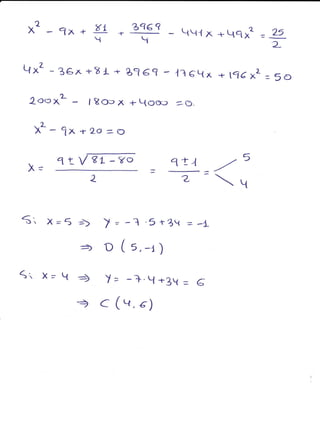 x² - 9x + 81/4 + 3969/4 - 441x + 49x² = 25/2
4x² - 36x + 81 + 3969 - 1764x + 196x² = 50
200x² - 1800x + 4000 = 0.
x² - 9x + 20 = 0
x = (9 ± √(81 - 80))/2 = (9 ± 1)/2 = 5
4
Si x = 5 ⇒ y = -7·5 + 34 = -1
⇒ D (5, -1)
Si x = 4 ⇒ y = -7·4 + 34 = 6
⇒ C (4, 6)